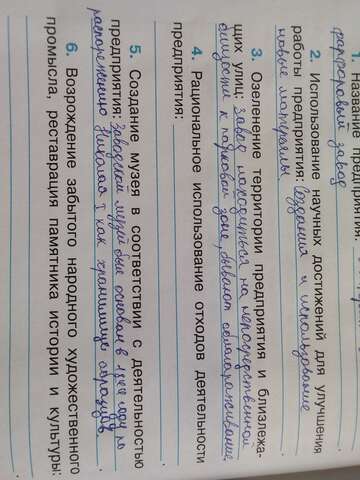 1. Название предприятия
фарфоровый завод
2. Использование научных достижений для улучшения
работы предприятия: Создания и использование
новые материалы
3. Озеленение территории предприятия и близлежа-
щих улиц: завод находиться на непосредственной
близости к парковой зоне, бывают самоблагоживание
4. Рациональное использование отходов деятельности
предприятия:
5. Создание музея в соответствии с деятельностью
предприятия: заводской музей был основан в 1844 году по
распоряжению Николая I как хранилище образцов.
6. Возрождение забытого народного художественного
промысла, реставрация памятника истории и культуры: